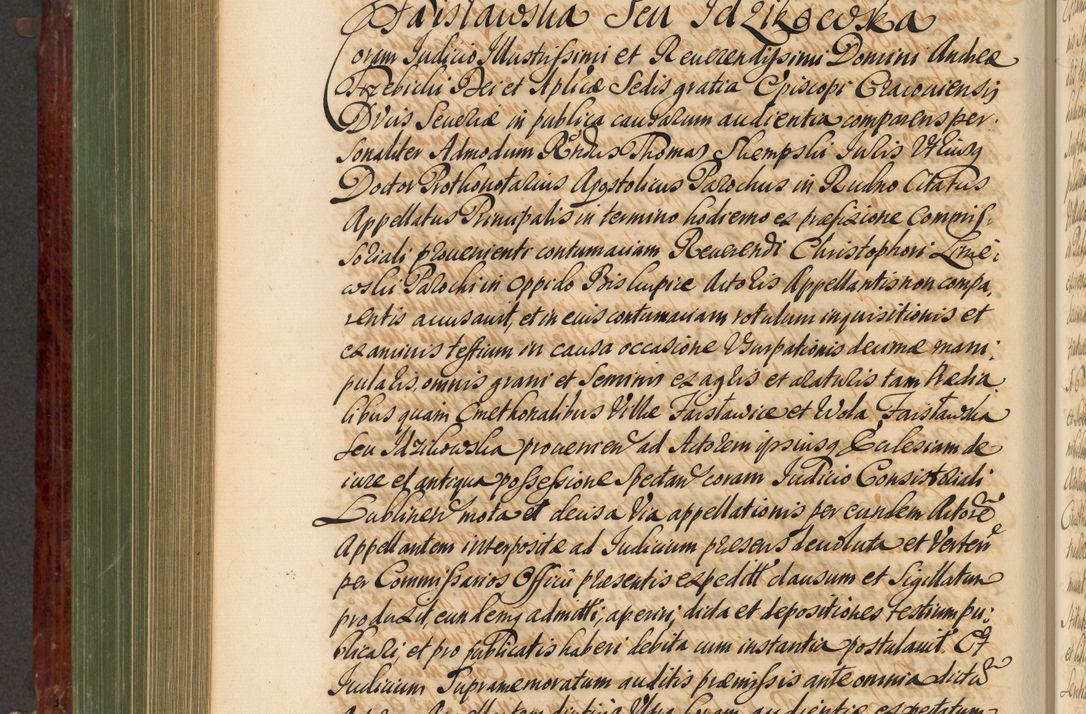 Faisławska seu Idzikowska
Coram Judicio Illustrissimi et Reuerendissimi Domini Andreæ
Trzebicki Dei et Aplicæ Sedis gratia Episcopi Cracouiensis
Ducis Seueriæ in publica causarum audientia comparens per-
sonaliter Admodum Rndus Thomas Skempski Juris Vtriusq
Doctor Prothonotarius Apostolicus Parochus in Rudno Citatus
Appellatus Principalis in termino hodierno ex præfixione Commis-
soriali prouenienti contumaciam Reuerendi Christophori
Parochi in oppido Biskupice Actoris Appellantis non compa-
rentis accusauit, et in eius contumaciam rotulum inquisitionis et
examinis testium in causa occasione Vsurpationis decimæ mani-
pularis, omnis grani et seminis ex agris et araturis tam Prædia-
libus quam Cmethonalibus Villæ Faisławice et Wola Faisławska
seu Idzikowska prouenien ad Actorem ipsiusq Ecclesiam de
iure et antiqua possessione spectan coram Judicio Consistoriali
Lublinen mota et decisa Via appellationis per eundem Actorē
Appellantem interpositæ ad Judicium præsens deuoluta et Verten
per Commissarios Officii præsentis expeditt clausum et Sigillatum
produxit, eundemq admitti, aperiri, dicta et depositiones testium pu-
blicari, et pro publicatis haberi debita cum instantia postulauit. Et
Judicium Supramemoratum auditis præmissis ante omnia dictū